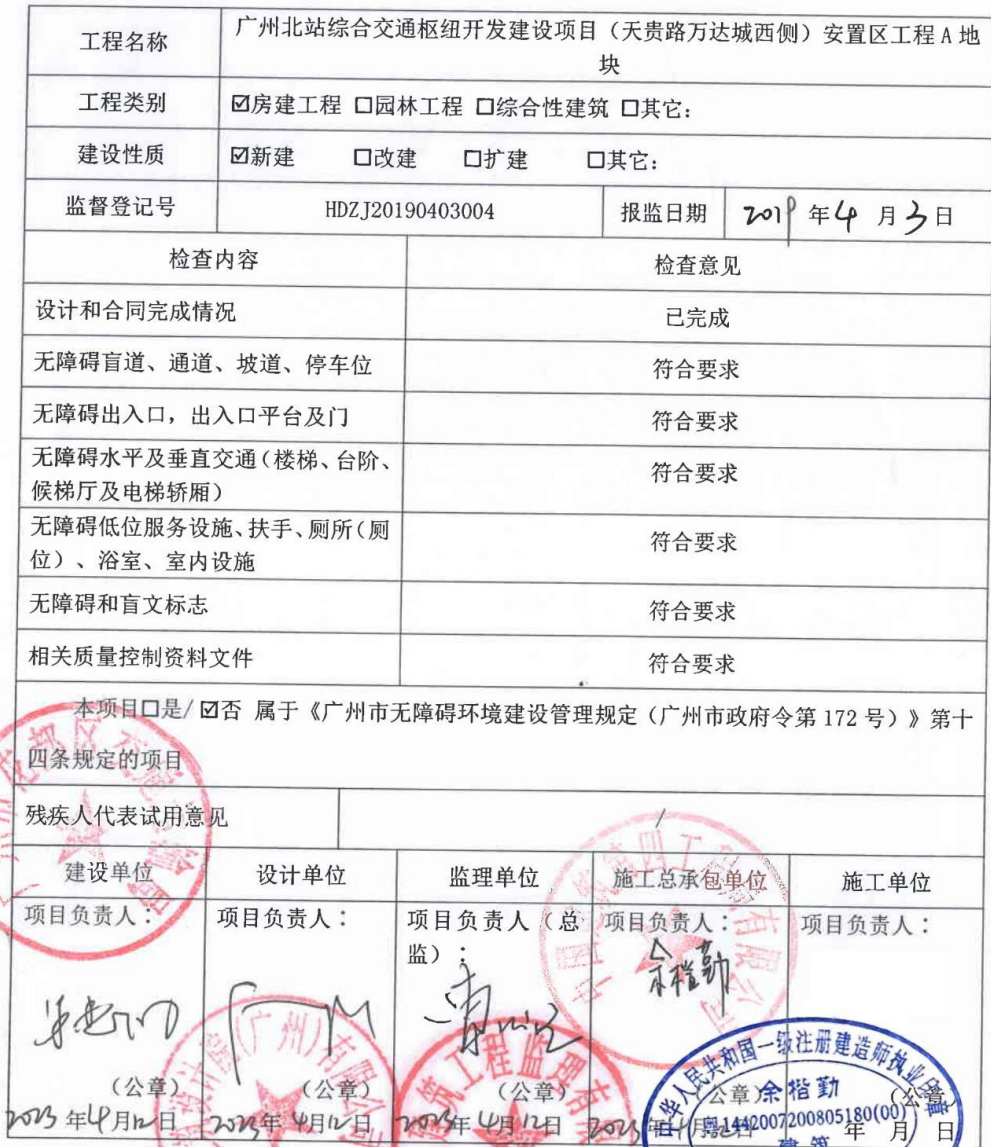 工程名称
广州北站综合交通枢纽开发建设项目（天贵路万达城西侧）安置区工程 A 地
块
工程类别
☑房建工程 口园林工程 口综合性建筑 口其它：
建设性质
☑新建 口改建 口扩建 口其它：
监督登记号
HDZJ20190403004
报监日期
2019 年 4 月 3 日
检查内容
检查意见
设计和合同完成情况
已完成
无障碍盲道、通道、坡道、停车位
符合要求
无障碍出入口，出入口平台及门
符合要求
无障碍水平及垂直交通（楼梯、台阶、
候梯厅及电梯轿厢）
符合要求
无障碍低位服务设施、扶手、厕所（厕
位）、浴室、室内设施
符合要求
无障碍和盲文标志
符合要求
相关质量控制资料文件
符合要求
本项目口是/ ☑否 属于《广州市无障碍环境建设管理规定（广州市政府令第 172 号）》第十
四条规定的项目
残疾人代表试用意见
/
建设单位
设计单位
监理单位
施工总承包单位
施工单位
项目负责人：
项目负责人：
项目负责人（总
监）：
项目负责人：
余楷勤
项目负责人：
（公章）
2023 年 4 月 12 日
（公章）
2023 年 4 月 12 日
（公章）
2023 年 4 月 12 日
（公章）
（公章）
年 月 日
中华人民共和国一级注册建造师执业印章
余楷勤
粤1442007200805180(00)
建筑